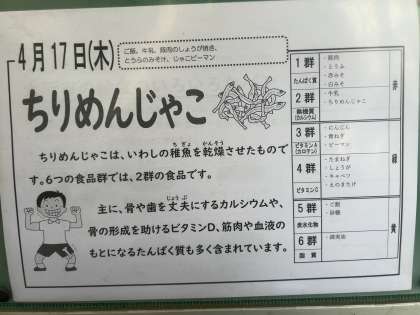 4月17日(木)
ご飯、牛乳、豚肉のしょうが焼き、
とうふのみそ汁、じゃこピーマン
ちりめんじゃこ
ちりめんじゃこは、いわしの稚魚を乾燥させたもので
ちぎょ かんそう
す。6つの食品群では、2群の食品です。
主に、骨や歯を丈夫にするカルシウムや、
じょうぶ
骨の形成を助けるビタミンD、筋肉や血液の
もとになるたんぱく質も多く含まれています。
1群
たんぱく質
・豚肉
・とうふ
・赤みそ
・白みそ
2群
無機質
(カルシウム)
・牛乳
・ちりめんじゃこ
赤
3群
ビタミンA
(カロテン)
・にんじん
・青ねぎ
・ピーマン
4群
ビタミンC
・たまねぎ
・しょうが
・キャベツ
・えのきたけ
緑
5群
炭水化物
・ご飯
・砂糖
6群
脂質
黄